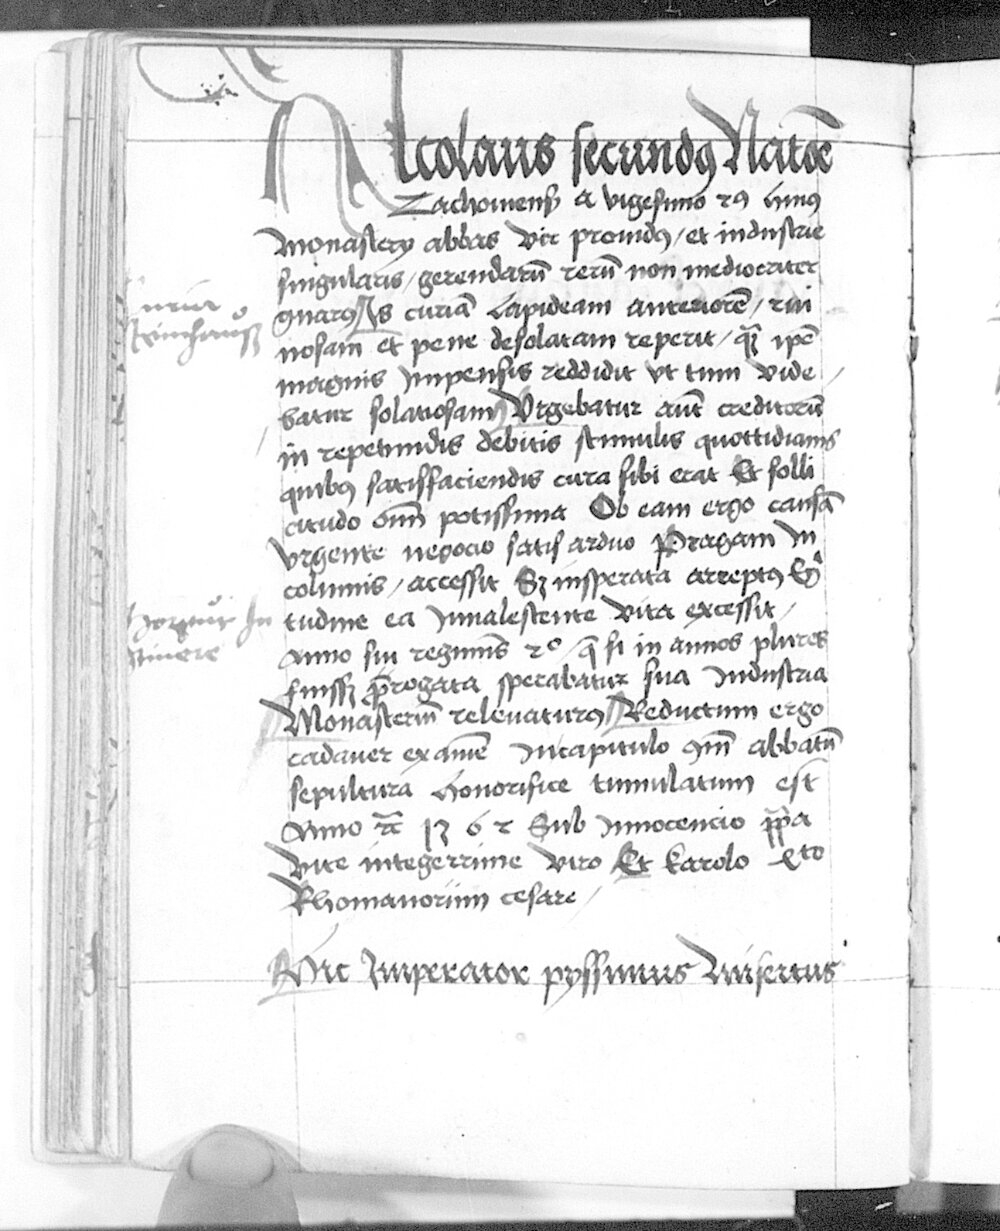 Nicolaus secundꝯ Natõe
Zachouiensꝭ a vigesimo 2ꝯ huiꝯ
monastery abbas vir prouidꝯ / et industrie
singularis / gerendarũ rerũ non mediocriter
gnarꝯ Is curiã lapideam anteriorẽ / rui
nosam et pene desolatam reperit / qꝫ ip̃e
magnis Impensis reddidit vt tum vide
batur solatiosam Vrgebatur aũt creditorũ
in repetundis debitis stimulis quottidianis
quibꝯ satisfaciendis cura sibi erat Et solli
citudo om̃ potissima Ob eam ergo causã
vrgente negocio satis arduo Pragam In
columis / accessit Sꝫ insperata arreptꝯ egⁱ
tudine ea Inualescente vita excessit /
Anno sui regiminis 2º / q̃ si in annos plures
fuissꝫ p̃rogata sperabatur sua Industria
Monasteriũ releuaturꝯ Reductum ergo
cadauer exanime In capitulo ꝯm̃ abbatũ
sepultura honorifice tumulatum est
Anno rc̃ 1362 Sub Innocencio pp̃a
vite integerrime viro Et karolo 4to
Rhomanorum cesare /
Hic Imperator pyssimus Misertus
Curia
Steinhauß
Moritur In
Itinere